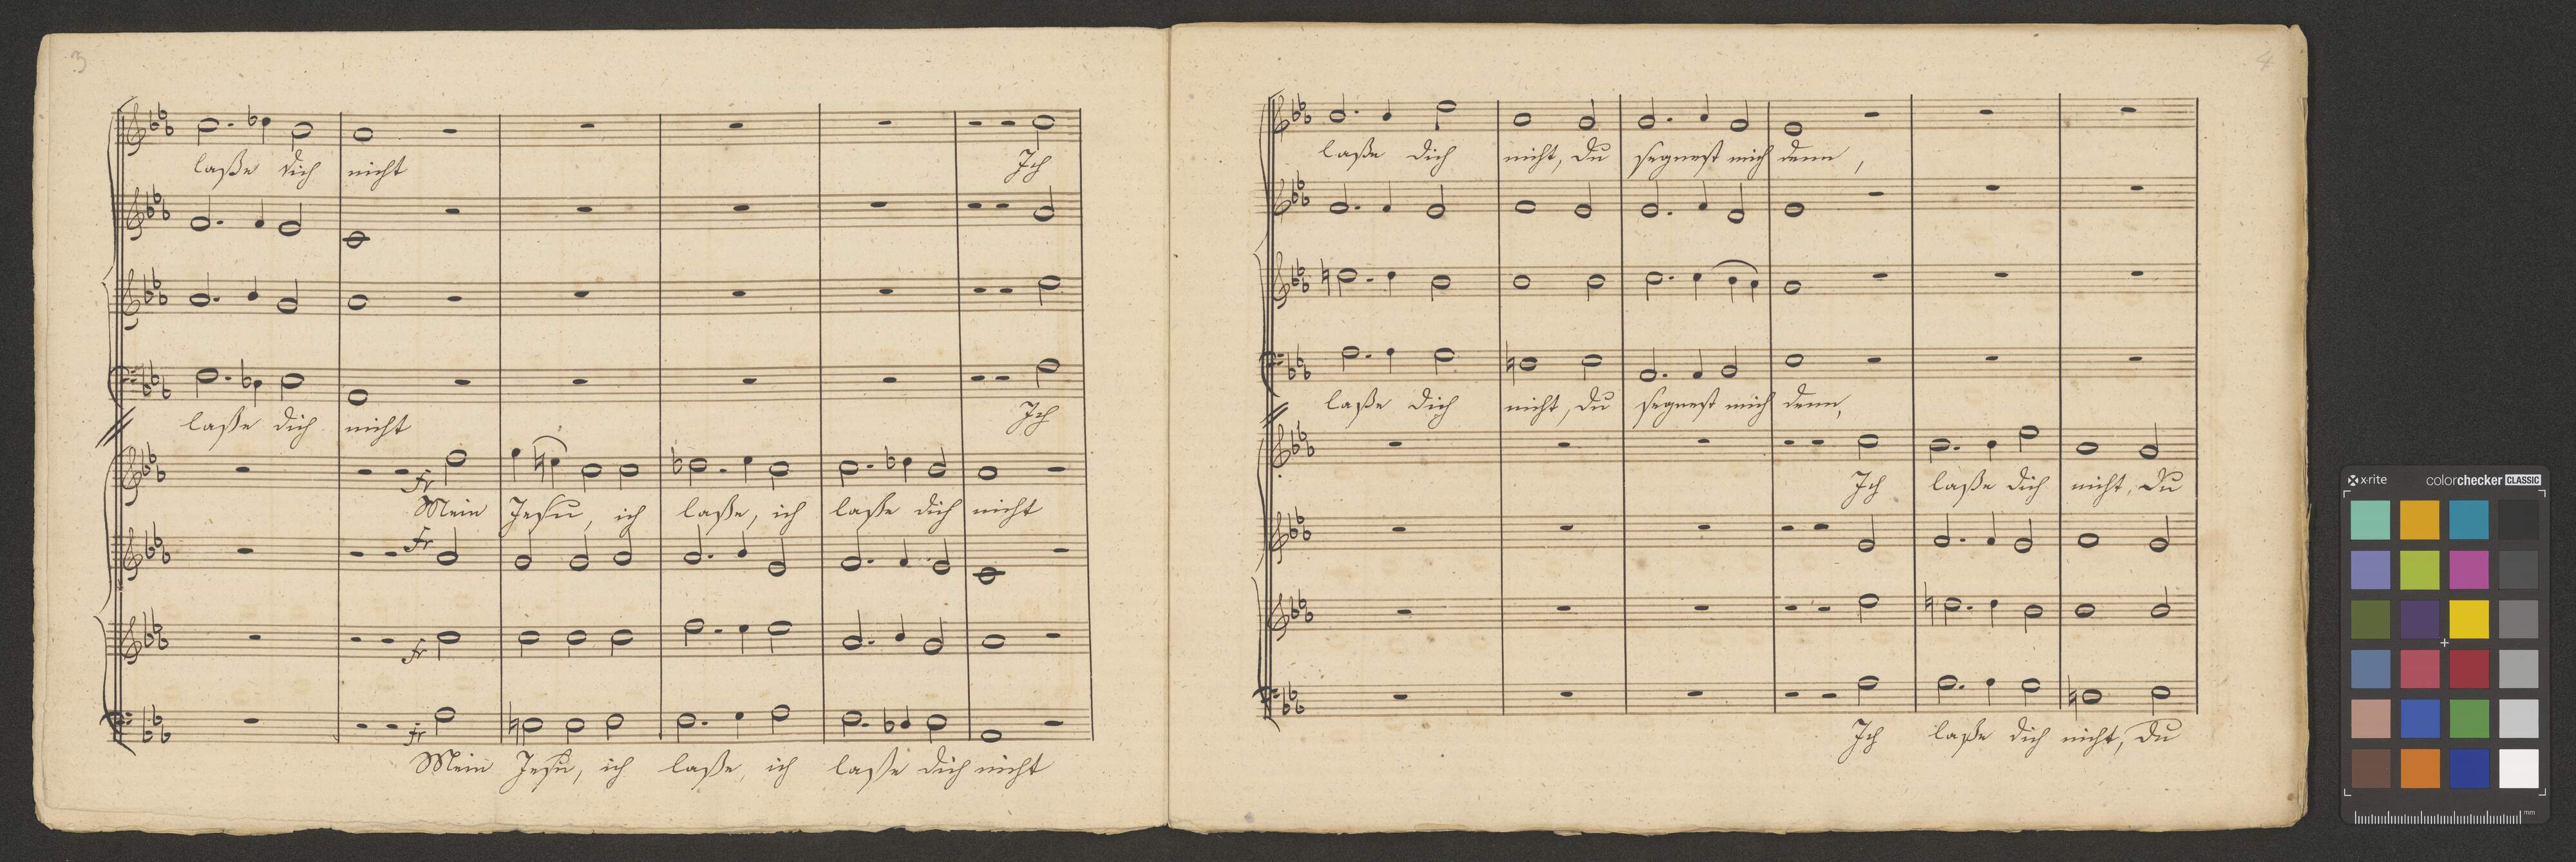 3
laße dich nicht Ich
laße dich nicht Ich
Mein Jesu, ich laße, ich laße dich nicht
Mein Jesu, ich laße, ich laße dich nicht
4
laße dich nicht, du segnest mich denn,
laße dich nicht, du segnest mich denn,
Ich laße dich nicht, du
Ich laße dich nicht, du
x-rite colorchecker CLASSIC
mm